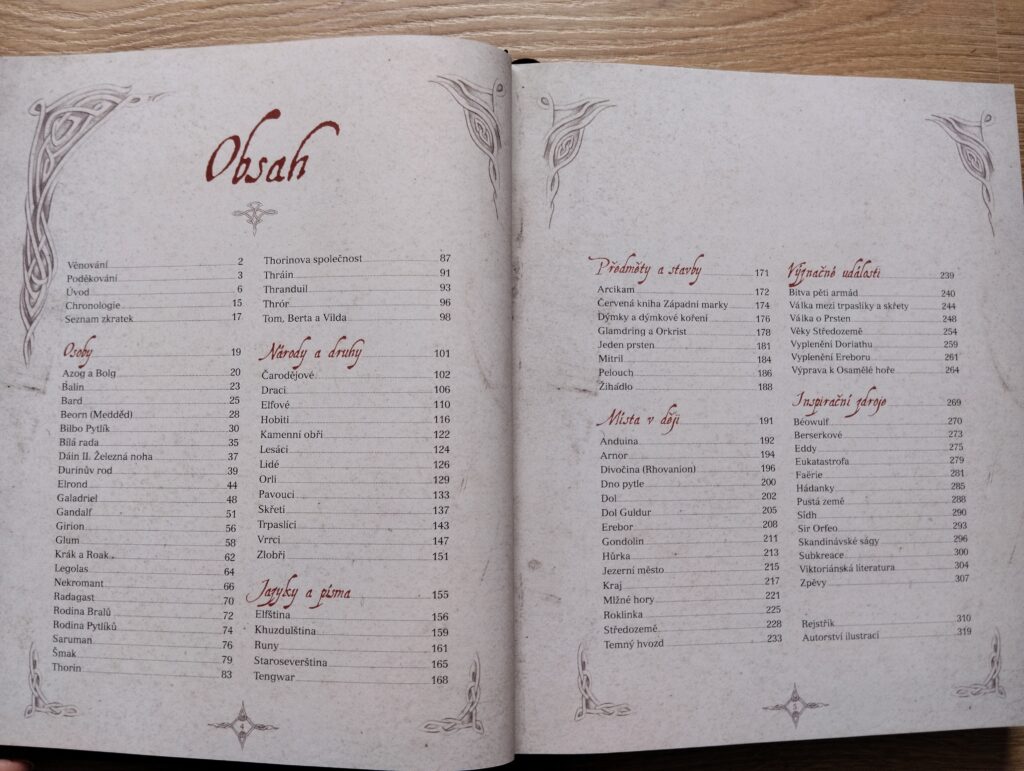 Obsah
Věnování 2
Poděkování 3
Úvod 6
Chronologie 15
Seznam zkratek 17
Osoby 19
Azog a Bolg 20
Balin 23
Bard 25
Beorn (Medděd) 28
Bilbo Pytlík 30
Bílá rada 35
Dáin II. Železná noha 37
Durinův rod 39
Elrond 44
Galadriel 48
Gandalf 51
Girion 56
Glum 58
Krák a Roak 62
Legolas 64
Nekromant 66
Radagast 70
Rodina Bralů 72
Rodina Pytlíků 74
Saruman 76
Šmak 79
Thorin 83
Thorinova společnost 87
Thráin 91
Thranduil 93
Thrór 96
Tom, Berta a Vilda 98
Národy a druhy 101
Čarodějové 102
Draci 106
Elfové 110
Hobiti 116
Kamenní obři 122
Lesáci 124
Lidé 126
Orli 129
Pavouci 133
Skřeti 137
Trpaslíci 143
Vrrci 147
Zlobři 151
Jazyky a písma 155
Elfština 156
Khuzdulština 159
Runy 161
Staroseverština 165
Tengwar 168
4
Předměty a stavby 171
Arcikam 172
Červená kniha Západní marky 174
Dýmky a dýmkové koření 176
Glamdring a Orkrist 178
Jeden prsten 181
Mitril 184
Pelouch 186
Žihadlo 188
Místa v ději 191
Anduina 192
Arnor 194
Divočina (Rhovanion) 196
Dno pytle 200
Dol 202
Dol Guldur 205
Erebor 208
Gondolin 211
Hůrka 213
Jezerní město 215
Kraj 217
Mlžné hory 221
Roklinka 225
Středozemě 228
Temný hvozd 233
Význačné události 239
Bitva pěti armád 240
Válka mezi trpaslíky a skřety 244
Válka o Prsten 248
Věky Středozemě 254
Vyplenění Doriathu 259
Vyplenění Ereboru 261
Výprava k Osamělé hoře 264
Inspirační zdroje 269
Béowulf 270
Berserkové 273
Eddy 275
Eukatastrofa 279
Faërie 281
Hádanky 285
Pustá země 288
Sídh 290
Sir Orfeo 293
Skandinávské ságy 296
Subkreace 300
Viktoriánská literatura 304
Zpěvy 307
Rejstřík 310
Autorství ilustrací 319
5